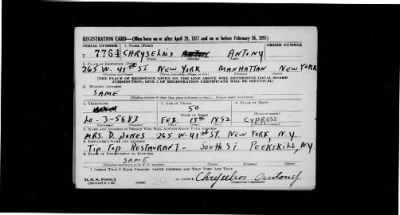 REGISTRATION CARD—(Men born on or after April 28, 1877 and on or before February 16, 1897)
SERIAL NUMBER 1. NAME (Print) ORDER NUMBER
7764 CHRYSELIOS ANTONY
2. PLACE OF RESIDENCE (Print)
265 W. 41st ST. NEW YORK MANHATTAN NEW YORK
(THE PLACE OF RESIDENCE GIVEN ON THE LINE ABOVE WILL DETERMINE LOCAL BOARD
JURISDICTION; LINE 2 OF REGISTRATION CERTIFICATE WILL BE IDENTICAL)
3. MAILING ADDRESS
SAME
4. TELEPHONE 5. AGE IN YEARS 6. PLACE OF BIRTH
50
LO-3-5683 FEB 15th 1892 CYPRESS
7. NAME AND ADDRESS OF PERSON WHO WILL ALWAYS KNOW YOUR ADDRESS
MRS. D. JONES 265 W 41st ST. NEW YORK, N.Y.
8. EMPLOYER'S NAME AND ADDRESS
TIP TOP RESTAURANT - SOUTH ST PEEKSKILL, NY
9. PLACE OF EMPLOYMENT OR BUSINESS
SAME
I AFFIRM THAT I HAVE VERIFIED ABOVE ANSWERS AND THAT THEY ARE TRUE.
D. S. S. Form 1
Chryselios Antony